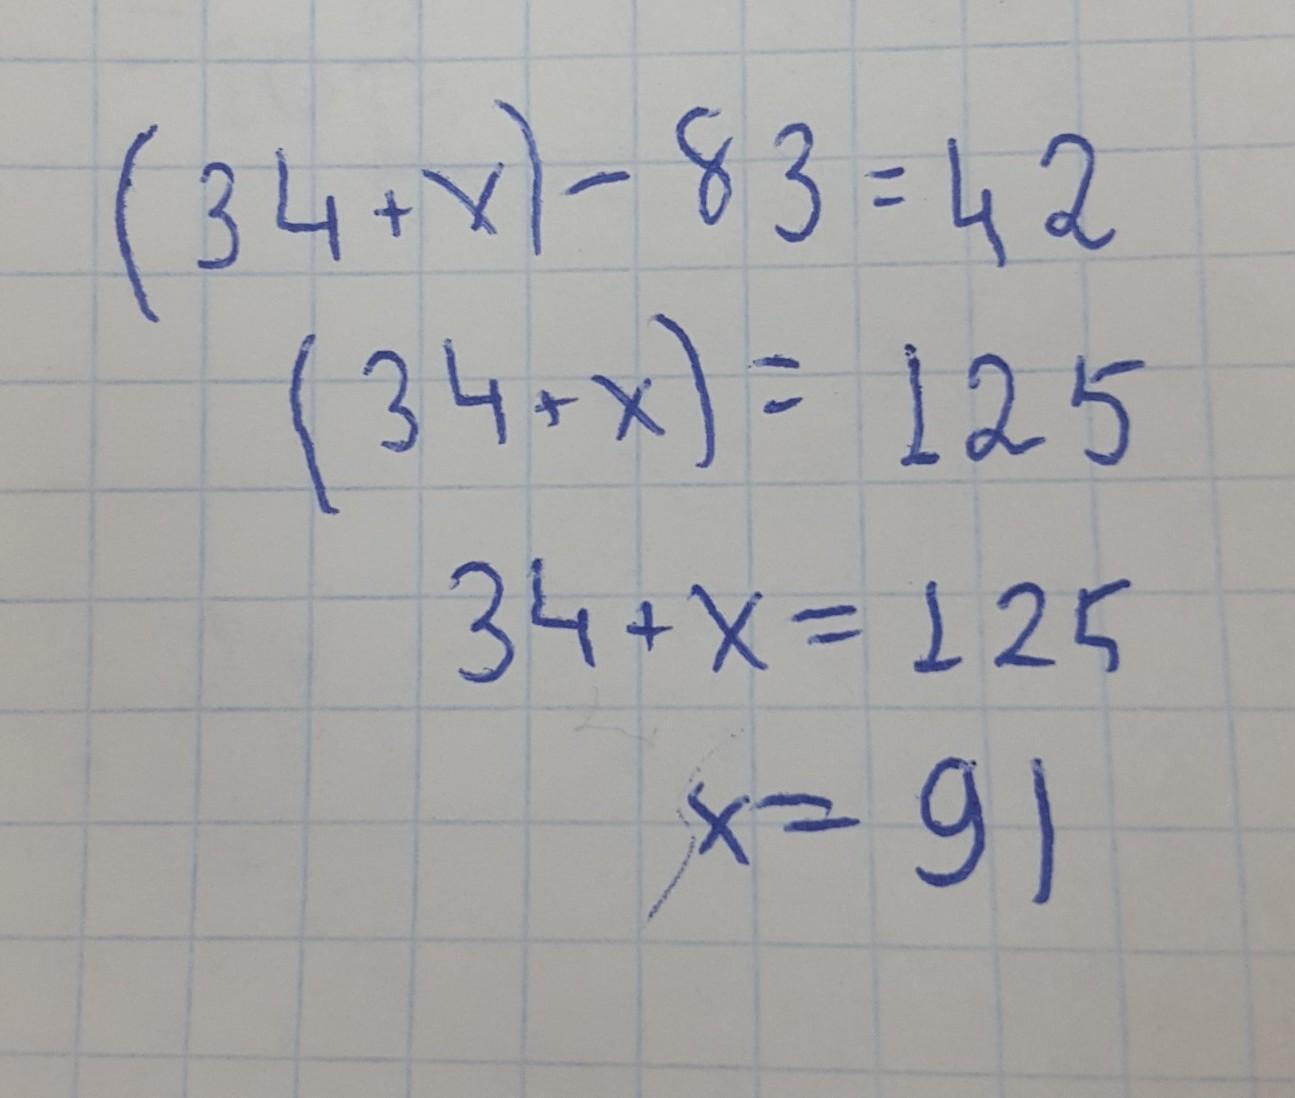 (34+x)-83=42
(34+x)=125
34+x=125
x=91